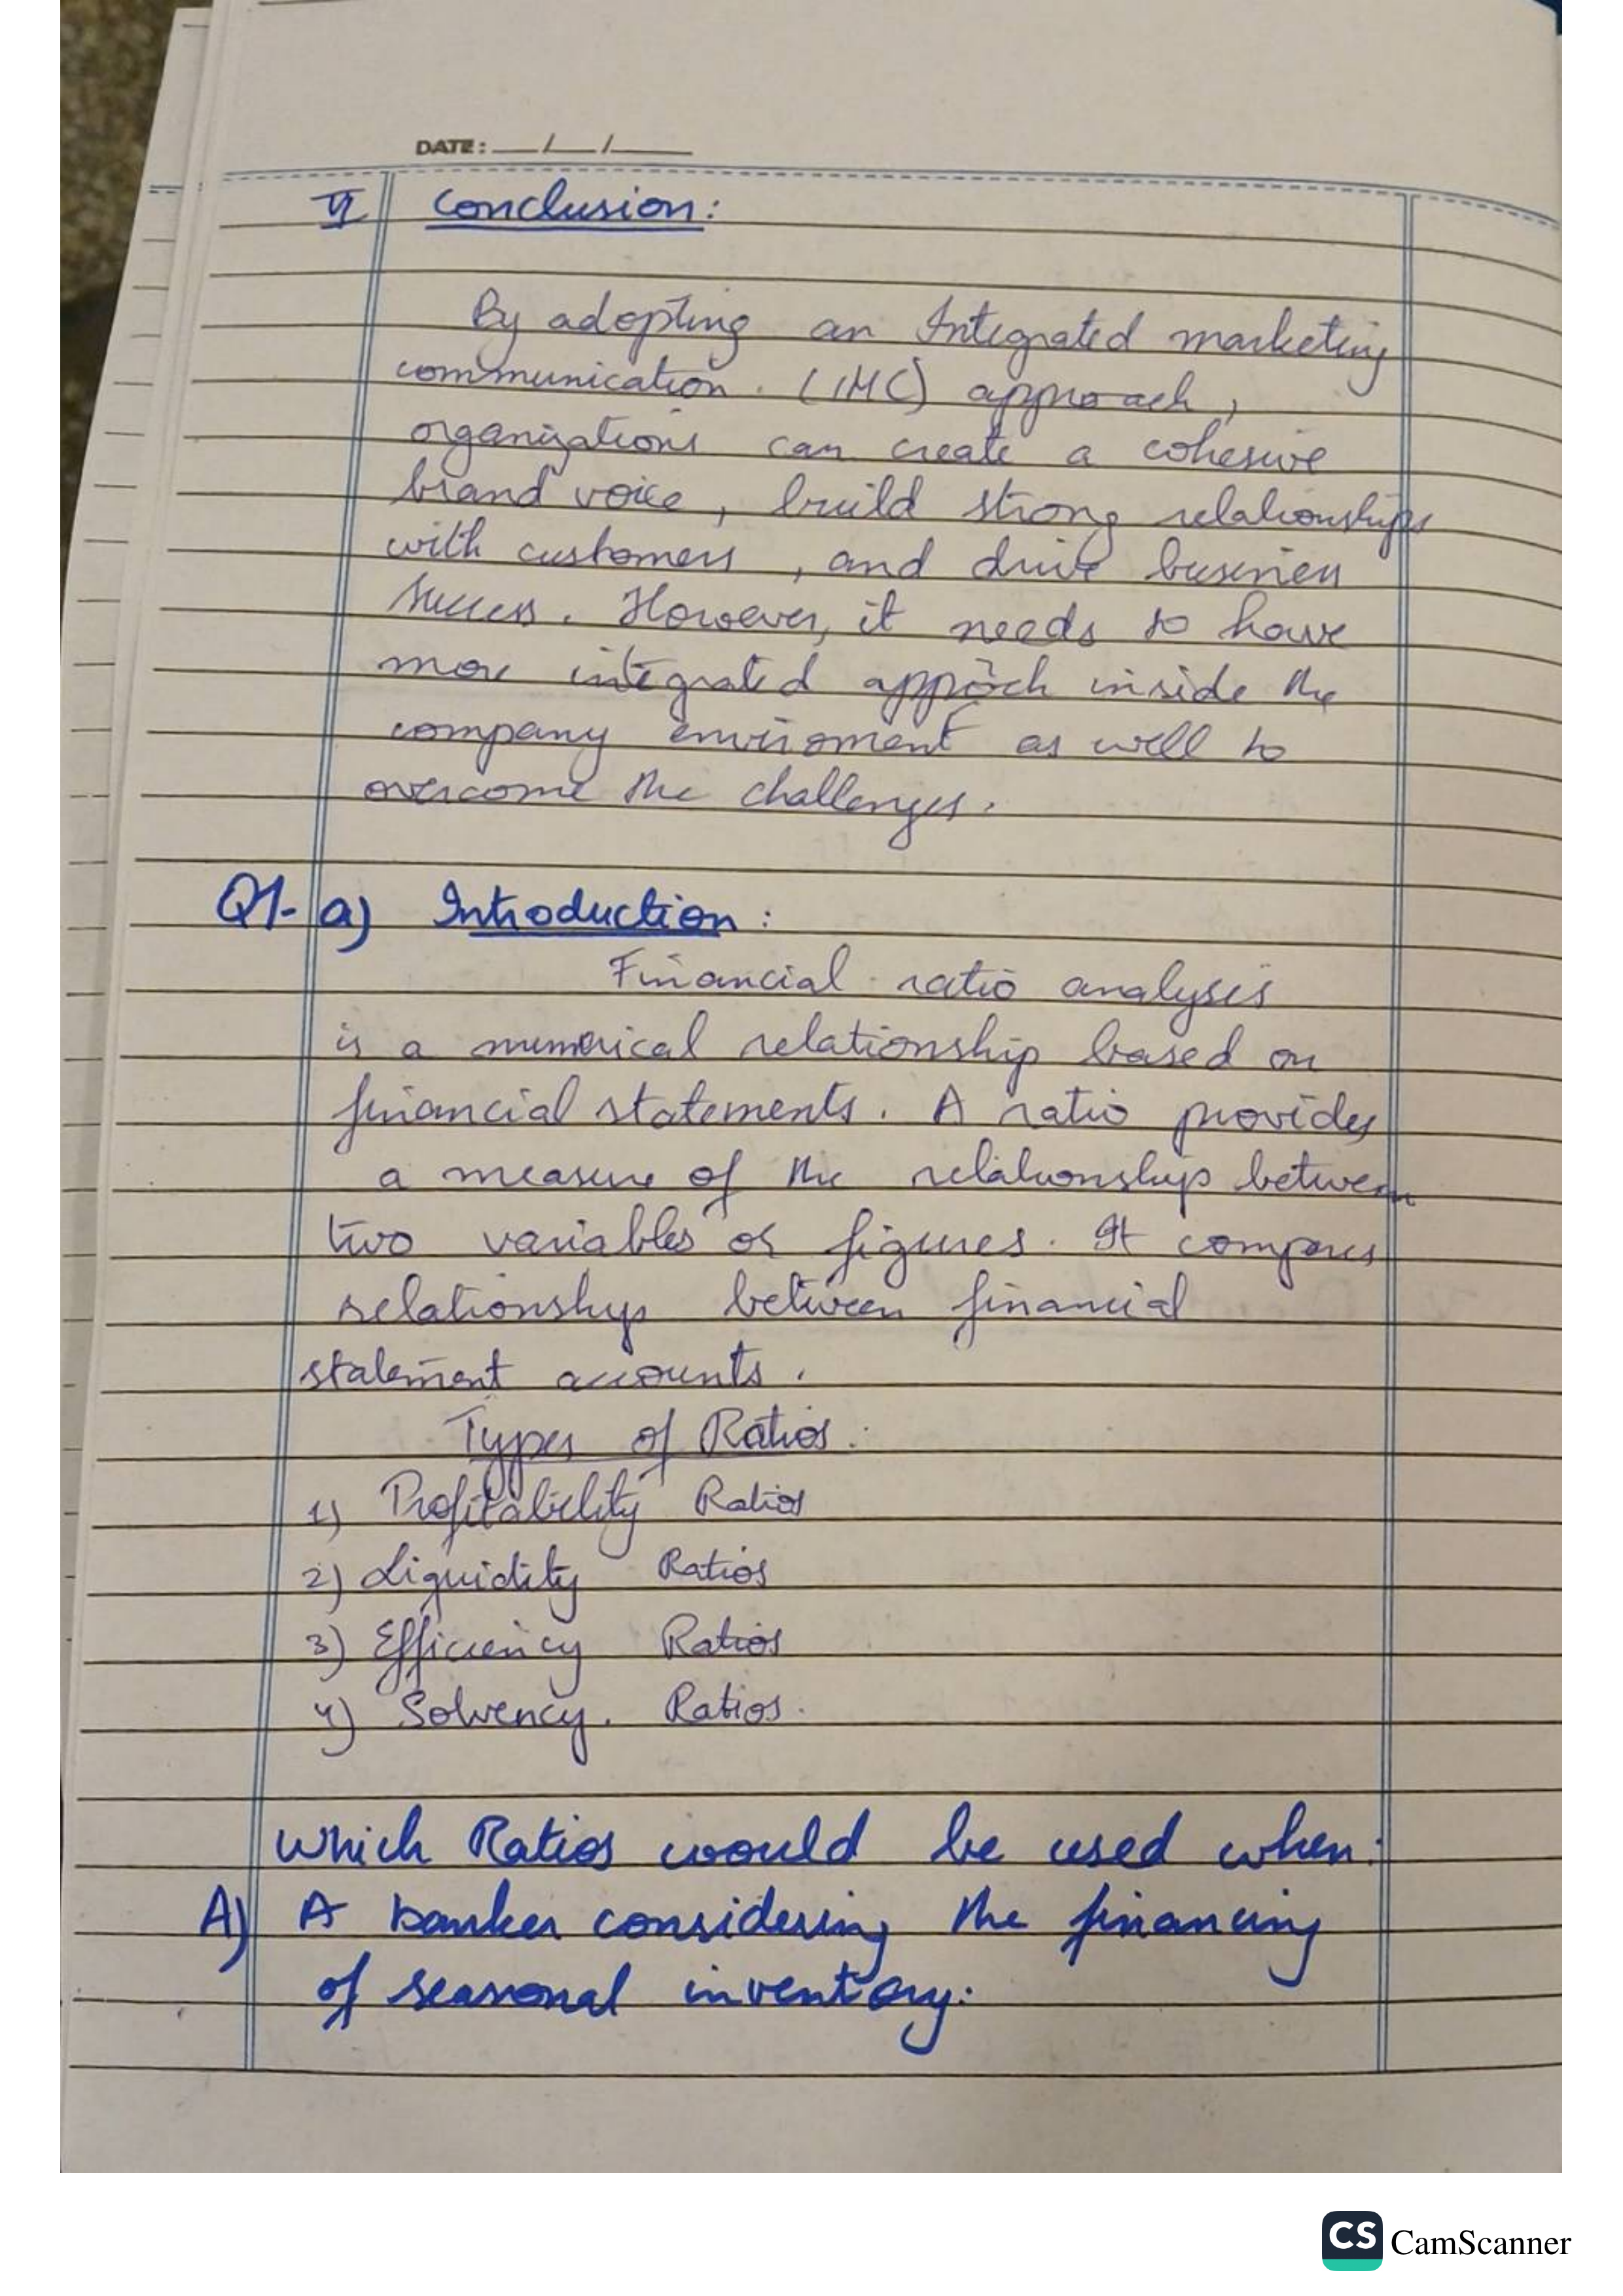 DATE: __/__/____
V Conclusion:
By adopting an Integrated marketing
communication. (IMC) approach,
organizations can create a cohesive
brand voice, build strong relationships
with customers, and drive business
success. However, it needs to have
more integrated appröch inside the
company enviroment as well to
overcome the challenges.
Q1- a) Introduction:
Financial ratio analysis
is a numerical relationship based on
financial statements. A ratio provides
a measure of the relationship between
two variables or figures. It compares
relationship between financial
statement accounts.
Types of Ratios:
1) Profitability Ratios
2) Liquidity Ratios
3) Efficiency Ratios
4) Solvency. Ratios.
Which Ratios would be used when:
A) A banker considering the financing
of seasonal inventory:
CS CamScanner